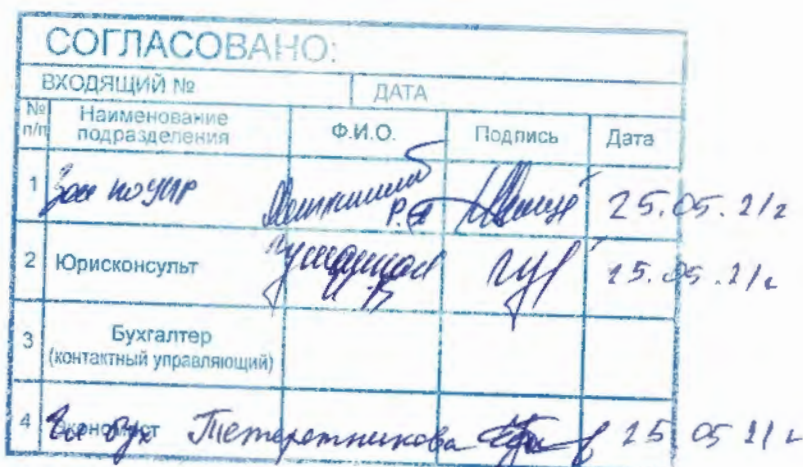 СОГЛАСОВАНО:
ВХОДЯЩИЙ № ДАТА
№ п/п Наименование подразделения Ф.И.О. Подпись Дата
1 Зам по УПР Р. 25.05.21г
2 Юрисконсульт 25.05.21г
3 Бухгалтер (контактный управляющий)
4 Экономист Гл бух Тетеретникова 25 05 21г